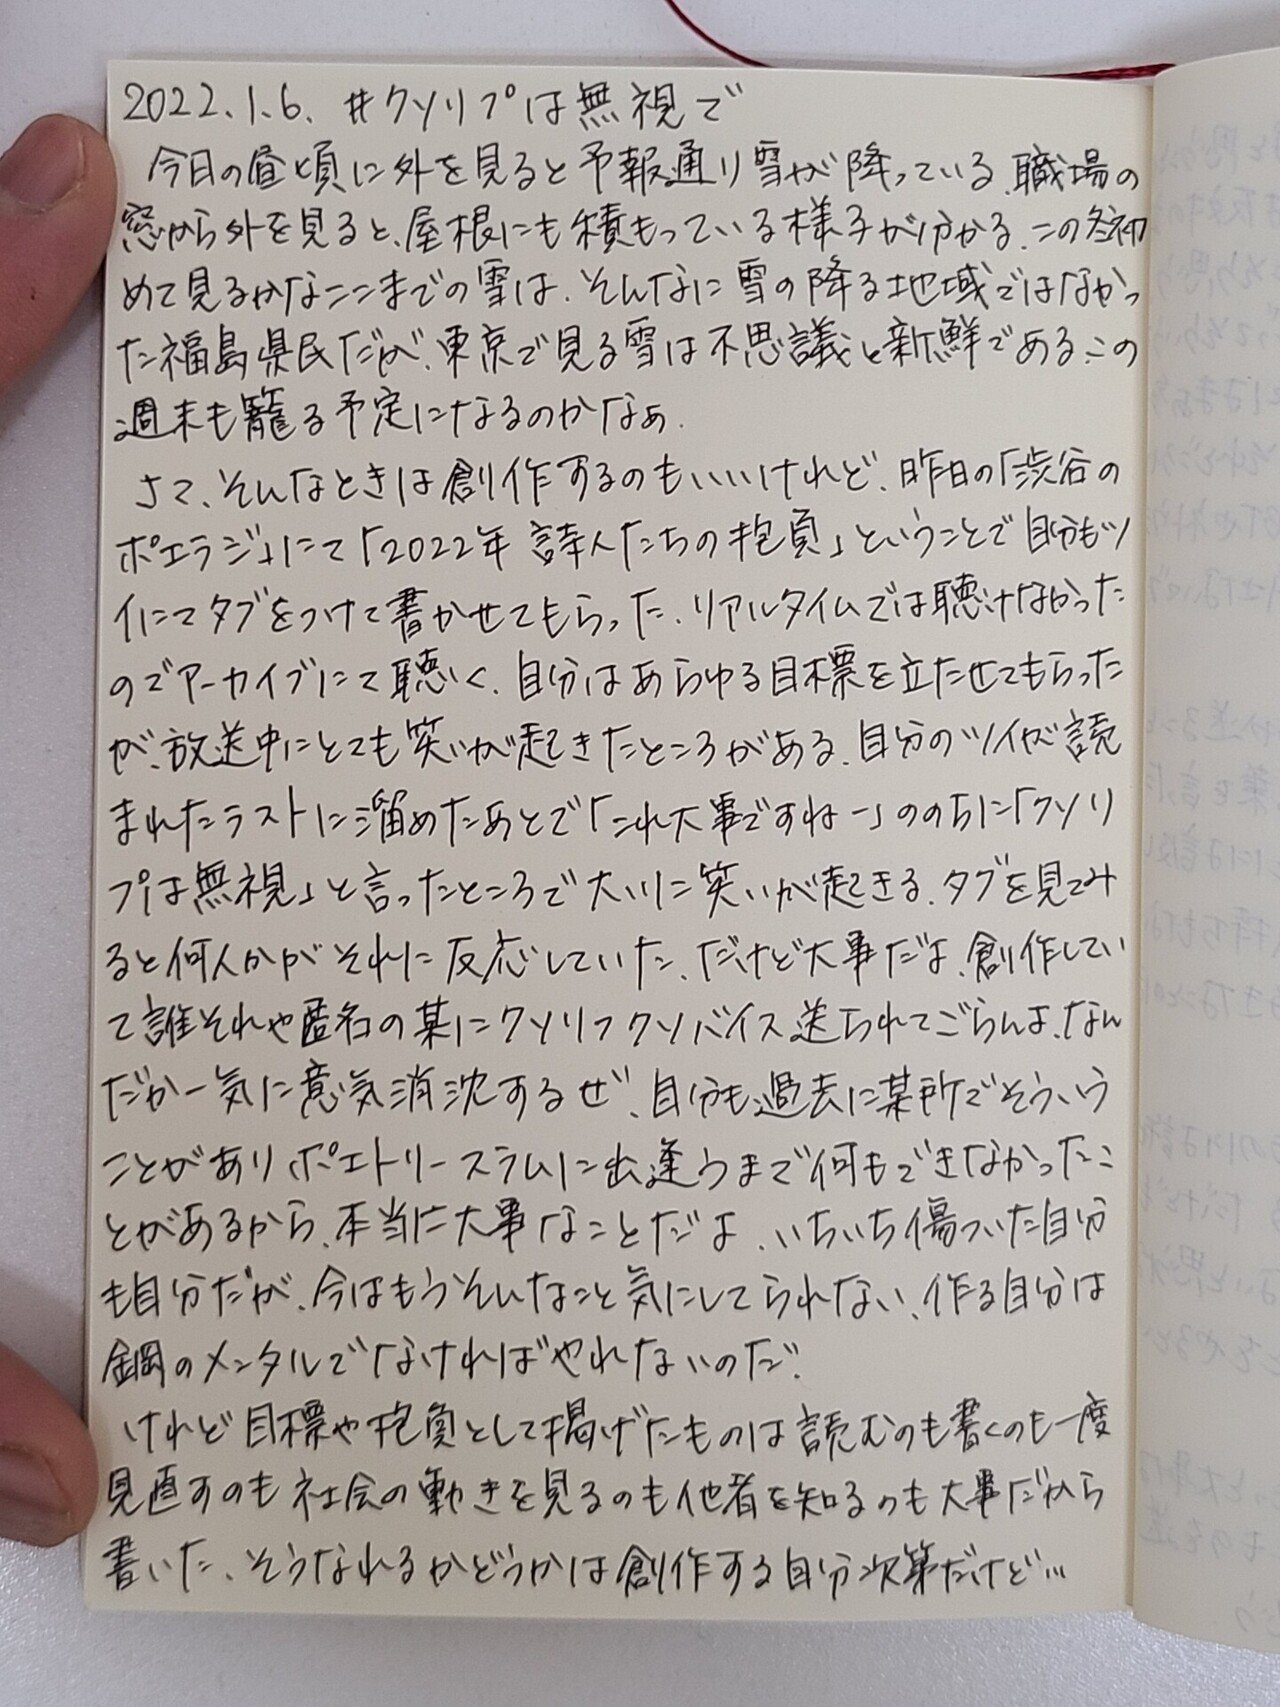 2022.1.6. #クソリプは無視で
今日の昼頃に外を見ると予報通り雪が降っている、職場の
窓から外を見ると、屋根にも積もっている様子が分かる、この冬初
めて見るかなここまでの雪は、そんなに雪の降る地域ではなかっ
た福島県民だが、東京で見る雪は不思議と新鮮である、この
週末も籠る予定になるのかなぁ、
さて、そんなときは創作するのもいいけれど、昨日の「渋谷の
ポエラジ」にて「2022年 詩人たちの抱負」ということで自分もツ
イにてタブをつけて書かせてもらった、リアルタイムでは聴けなかった
のでアーカイブにて聴く、自分はあらゆる目標を立たせてもらった
が、放送中にとても笑いが起きたところがある、自分のツイが読
まれたラストに溜めたあとで「これ大事ですねー」ののちに「クソリ
プは無視」と言ったところで大いに笑いが起きる、タブを見てみ
ると何人かがそれに反応していた、だけど大事だよ、創作してい
て誰それや匿名の某にクソリプクソバイス送られてごらんよ、なん
だか一気に意気消沈するぜ、自分も過去に某所でそういう
ことがありポエトリースラムに出逢うまで何もできなかったこ
とがあるから、本当に大事なことだよ、いちいち傷ついた自分
も自分だが、今はもうそんなこと気にしてられない、作る自分は
鋼のメンタルでなければやれないのだ、
けれど目標や抱負として掲げたものは読むのも書くのも一度
見直すのも社会の動きを見るのも他者を知るのも大事だから
書いた、そうなれるかどうかは創作する自分次第だけど…